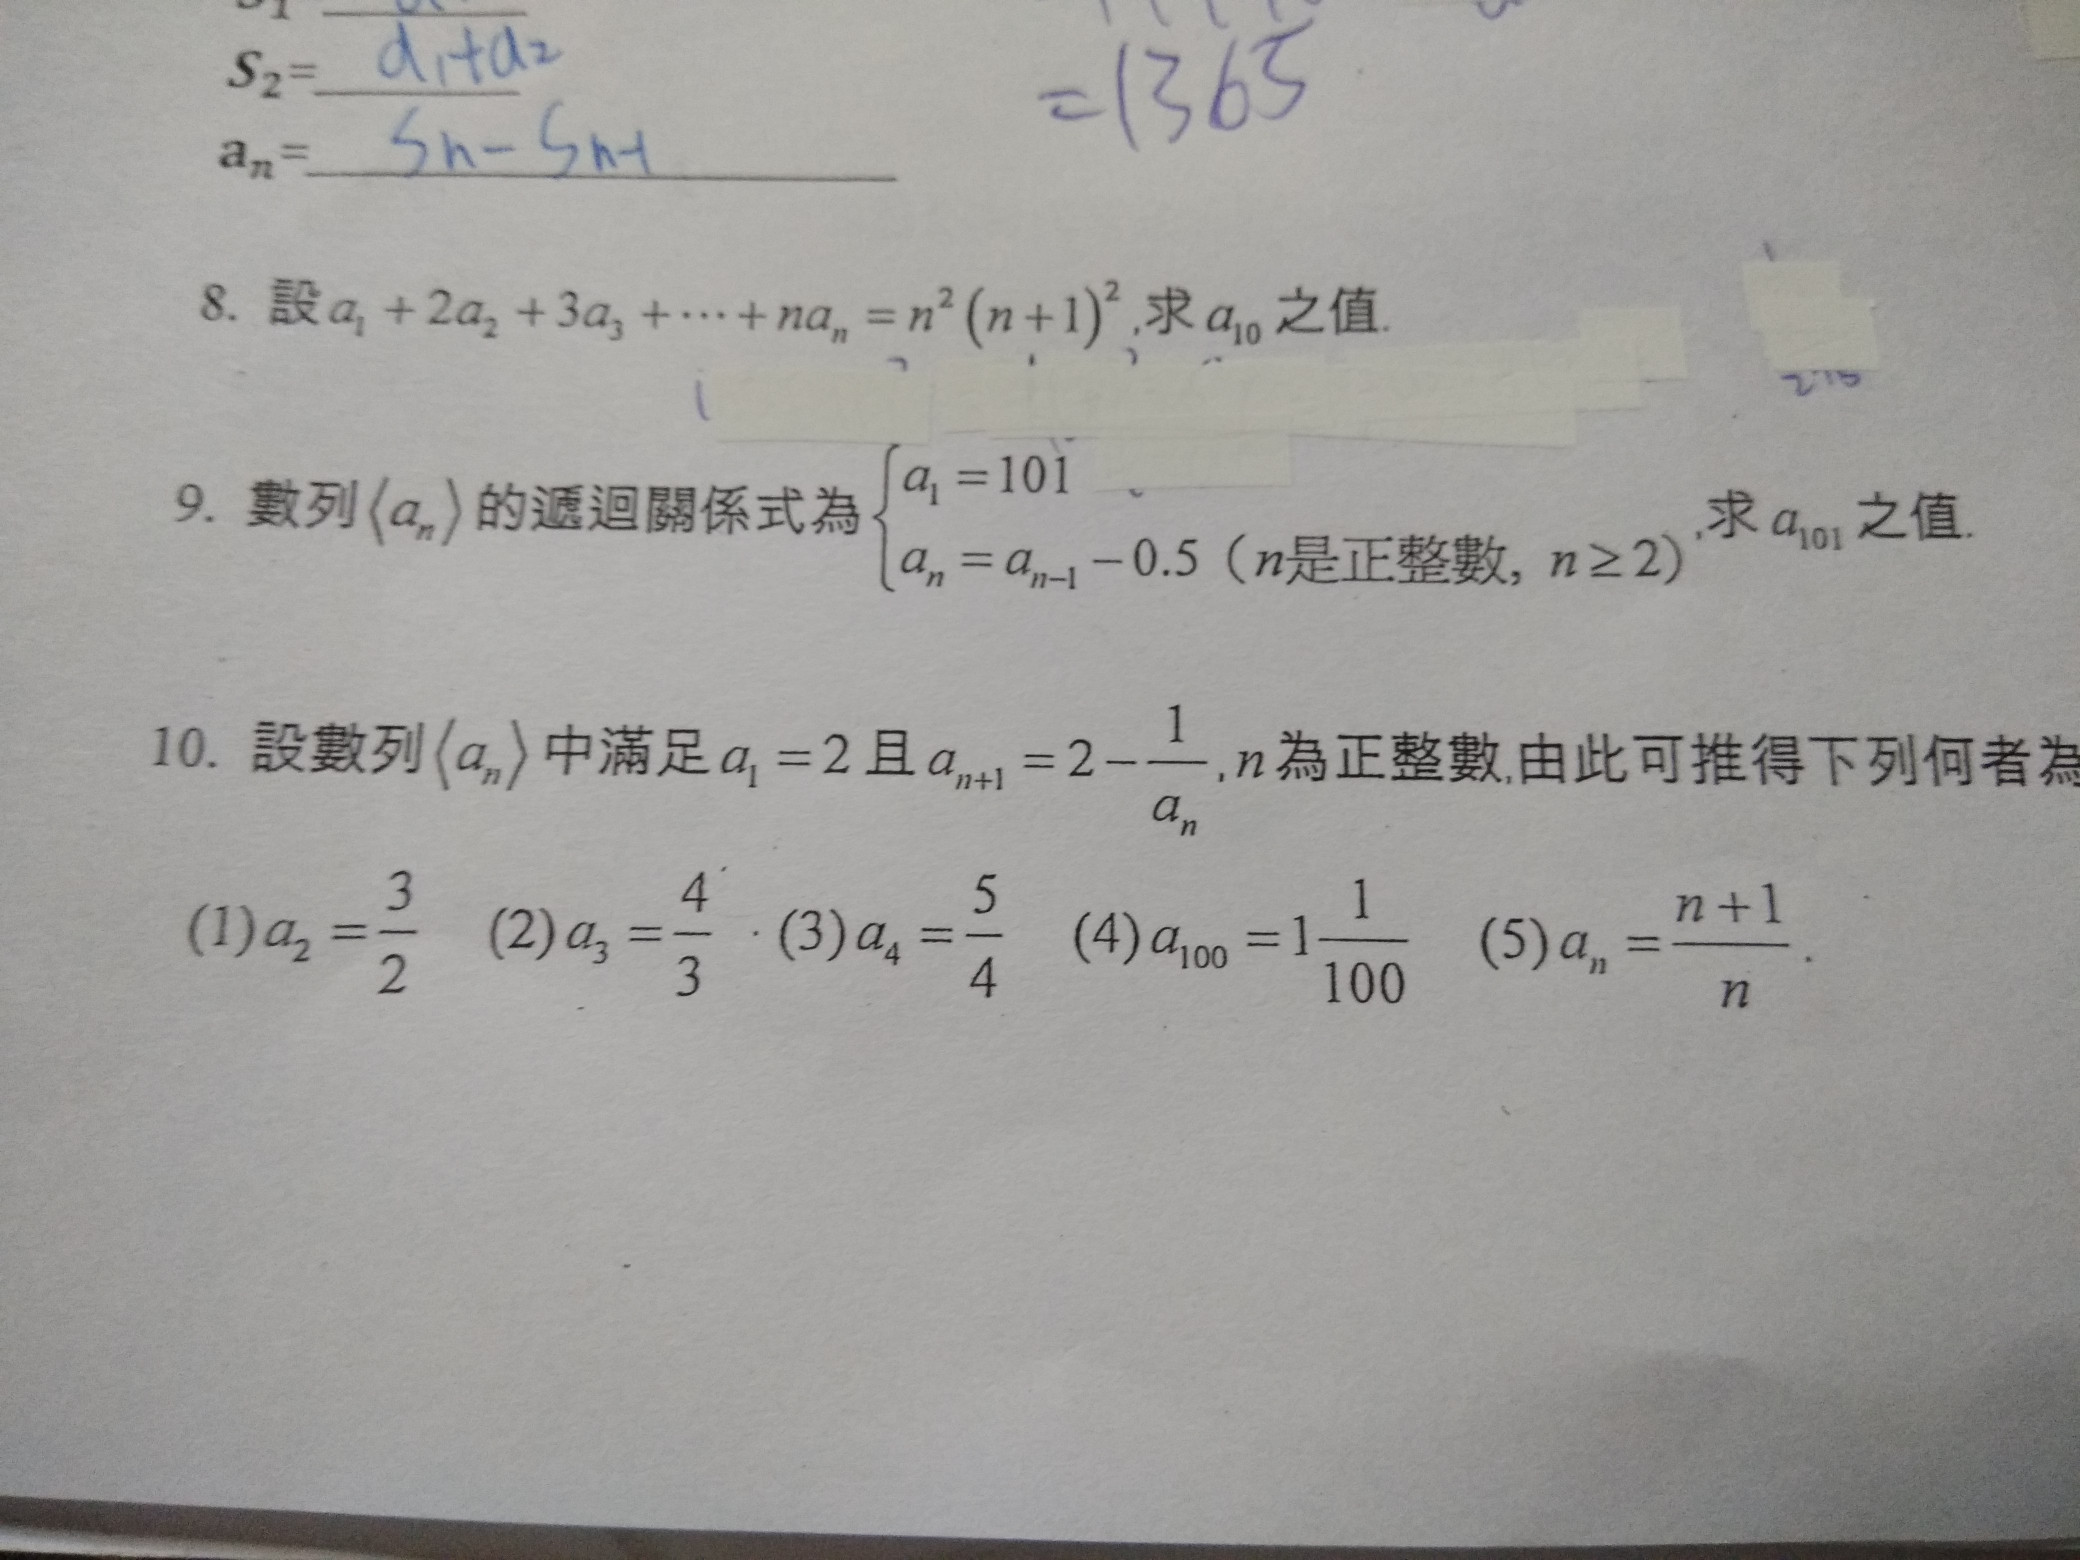 S₂= a₁+a₂
aₙ= Sn-Sn-1
=1365
8. 設 a₁ + 2a₂ + 3a₃ + ⋯ + naₙ = n²(n+1)²,求 a₁₀ 之值.
9. 數列⟨aₙ⟩的遞迴關係式為 { a₁ = 101
aₙ = aₙ₋₁ − 0.5（n是正整數, n ≥ 2） ,求 a₁₀₁ 之值.
10. 設數列⟨aₙ⟩中滿足 a₁ = 2 且 aₙ₊₁ = 2 − 1/aₙ ,n 為正整數,由此可推得下列何者為
(1) a₂ = 3/2 (2) a₃ = 4/3 (3) a₄ = 5/4 (4) a₁₀₀ = 1 1/100 (5) aₙ = (n+1)/n .